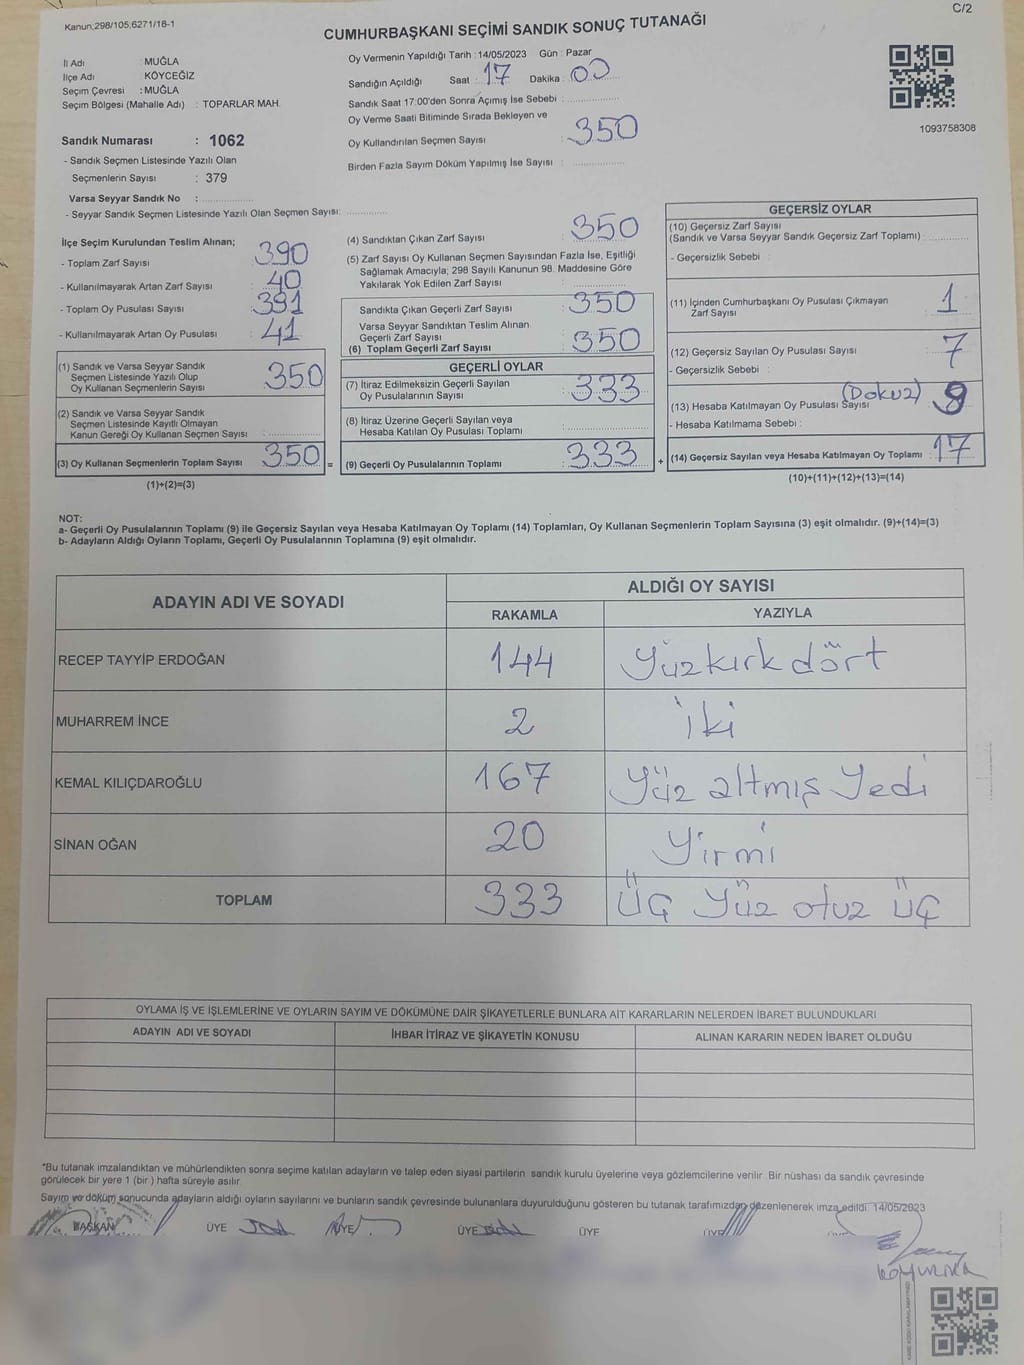 Kanun:298/105;6271/18-1
C/2
CUMHURBAŞKANI SEÇİMİ SANDIK SONUÇ TUTANAĞI
İl Adı MUĞLA
İlçe Adı KÖYCEĞİZ
Seçim Çevresi : MUĞLA
Seçim Bölgesi (Mahalle Adı) : TOPARLAR MAH.
Sandık Numarası : 1062
- Sandık Seçmen Listesinde Yazılı Olan
Seçmenlerin Sayısı : 379
Varsa Seyyar Sandık No :
- Seyyar Sandık Seçmen Listesinde Yazılı Olan Seçmen Sayısı:
Oy Vermenin Yapıldığı Tarih : 14/05/2023 Gün : Pazar
Sandığın Açıldığı Saat : 17 Dakika : 00
Sandık Saat 17:00'den Sonra Açımış İse Sebebi :
Oy Verme Saati Bitiminde Sırada Bekleyen ve
Oy Kullandırılan Seçmen Sayısı : 350
Birden Fazla Sayım Döküm Yapılmış İse Sayısı :
1093758308
İlçe Seçim Kurulundan Teslim Alınan;
- Toplam Zarf Sayısı : 390
- Kullanılmayarak Artan Zarf Sayısı : 40
- Toplam Oy Pusulası Sayısı : 391
- Kullanılmayarak Artan Oy Pusulası : 41
(1) Sandık ve Varsa Seyyar Sandık
Seçmen Listesinde Yazılı Olup
Oy Kullanan Seçmenlerin Sayısı : 350
(2) Sandık ve Varsa Seyyar Sandık
Seçmen Listesinde Kayıtlı Olmayan
Kanun Gereği Oy Kullanan Seçmen Sayısı :
(3) Oy Kullanan Seçmenlerin Toplam Sayısı : 350 =
(1)+(2)=(3)
(4) Sandıktan Çıkan Zarf Sayısı : 350
(5) Zarf Sayısı Oy Kullanan Seçmen Sayısından Fazla İse, Eşitliği
Sağlamak Amacıyla; 298 Sayılı Kanunun 98. Maddesine Göre
Yakılarak Yok Edilen Zarf Sayısı :
Sandıkta Çıkan Geçerli Zarf Sayısı : 350
Varsa Seyyar Sandıktan Teslim Alınan
Geçerli Zarf Sayısı
(6) Toplam Geçerli Zarf Sayısı : 350
GEÇERLİ OYLAR
(7) İtiraz Edilmeksizin Geçerli Sayılan
Oy Pusulalarının Sayısı : 333
(8) İtiraz Üzerine Geçerli Sayılan veya
Hesaba Katılan Oy Pusulası Toplamı :
(9) Geçerli Oy Pusulalarının Toplamı : 333 +
GEÇERSİZ OYLAR
(10) Geçersiz Zarf Sayısı
(Sandık ve Varsa Seyyar Sandık Geçersiz Zarf Toplamı) :
- Geçersizlik Sebebi :
(11) İçinden Cumhurbaşkanı Oy Pusulası Çıkmayan
Zarf Sayısı : 1
(12) Geçersiz Sayılan Oy Pusulası Sayısı : 7
- Geçersizlik Sebebi :
(Dokuz) 9
(13) Hesaba Katılmayan Oy Pusulası Sayısı
- Hesaba Katılmama Sebebi :
(14) Geçersiz Sayılan veya Hesaba Katılmayan Oy Toplamı : 17
(10)+(11)+(12)+(13)=(14)
NOT:
a- Geçerli Oy Pusulalarının Toplamı (9) ile Geçersiz Sayılan veya Hesaba Katılmayan Oy Toplamı (14) Toplamları, Oy Kullanan Seçmenlerin Toplam Sayısına (3) eşit olmalıdır. (9)+(14)=(3)
b- Adayların Aldığı Oyların Toplamı, Geçerli Oy Pusulalarının Toplamına (9) eşit olmalıdır.
ADAYIN ADI VE SOYADI ALDIĞI OY SAYISI
RAKAMLA YAZIYLA
RECEP TAYYİP ERDOĞAN 144 Yüzkırkdört
MUHARREM İNCE 2 iki
KEMAL KILIÇDAROĞLU 167 Yüz altmış Yedi
SİNAN OĞAN 20 Yirmi
TOPLAM 333 ÜÇ Yüz otuz üç
OYLAMA İŞ VE İŞLEMLERİNE VE OYLARIN SAYIM VE DÖKÜMÜNE DAİR ŞİKAYETLERLE BUNLARA AİT KARARLARIN NELERDEN İBARET BULUNDUKLARI
ADAYIN ADI VE SOYADI İHBAR İTİRAZ VE ŞİKAYETİN KONUSU ALINAN KARARIN NEDEN İBARET OLDUĞU
*Bu tutanak imzalandıktan ve mühürlendikten sonra seçime katılan adayların ve talep eden siyasi partilerin sandık kurulu üyelerine veya gözlemcilerine verilir. Bir nüshası da sandık çevresinde
görülecek bir yere 1 (bir ) hafta süreyle asılır.
Sayım ve döküm sonucunda adayların aldığı oyların sayılarını ve bunların sandık çevresinde bulunanlara duyurulduğunu gösteren bu tutanak tarafımızdan düzenlenerek imza edildi. 14/05/2023
BAŞKAN ÜYE ÜYE ÜYE ÜYE ÜYE